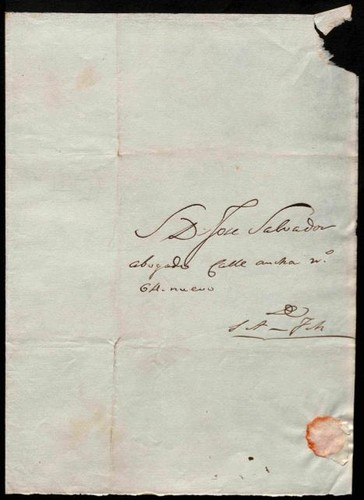 S D. José Salvador
abogado Calle ancha nº
64. nuevo
S. A.